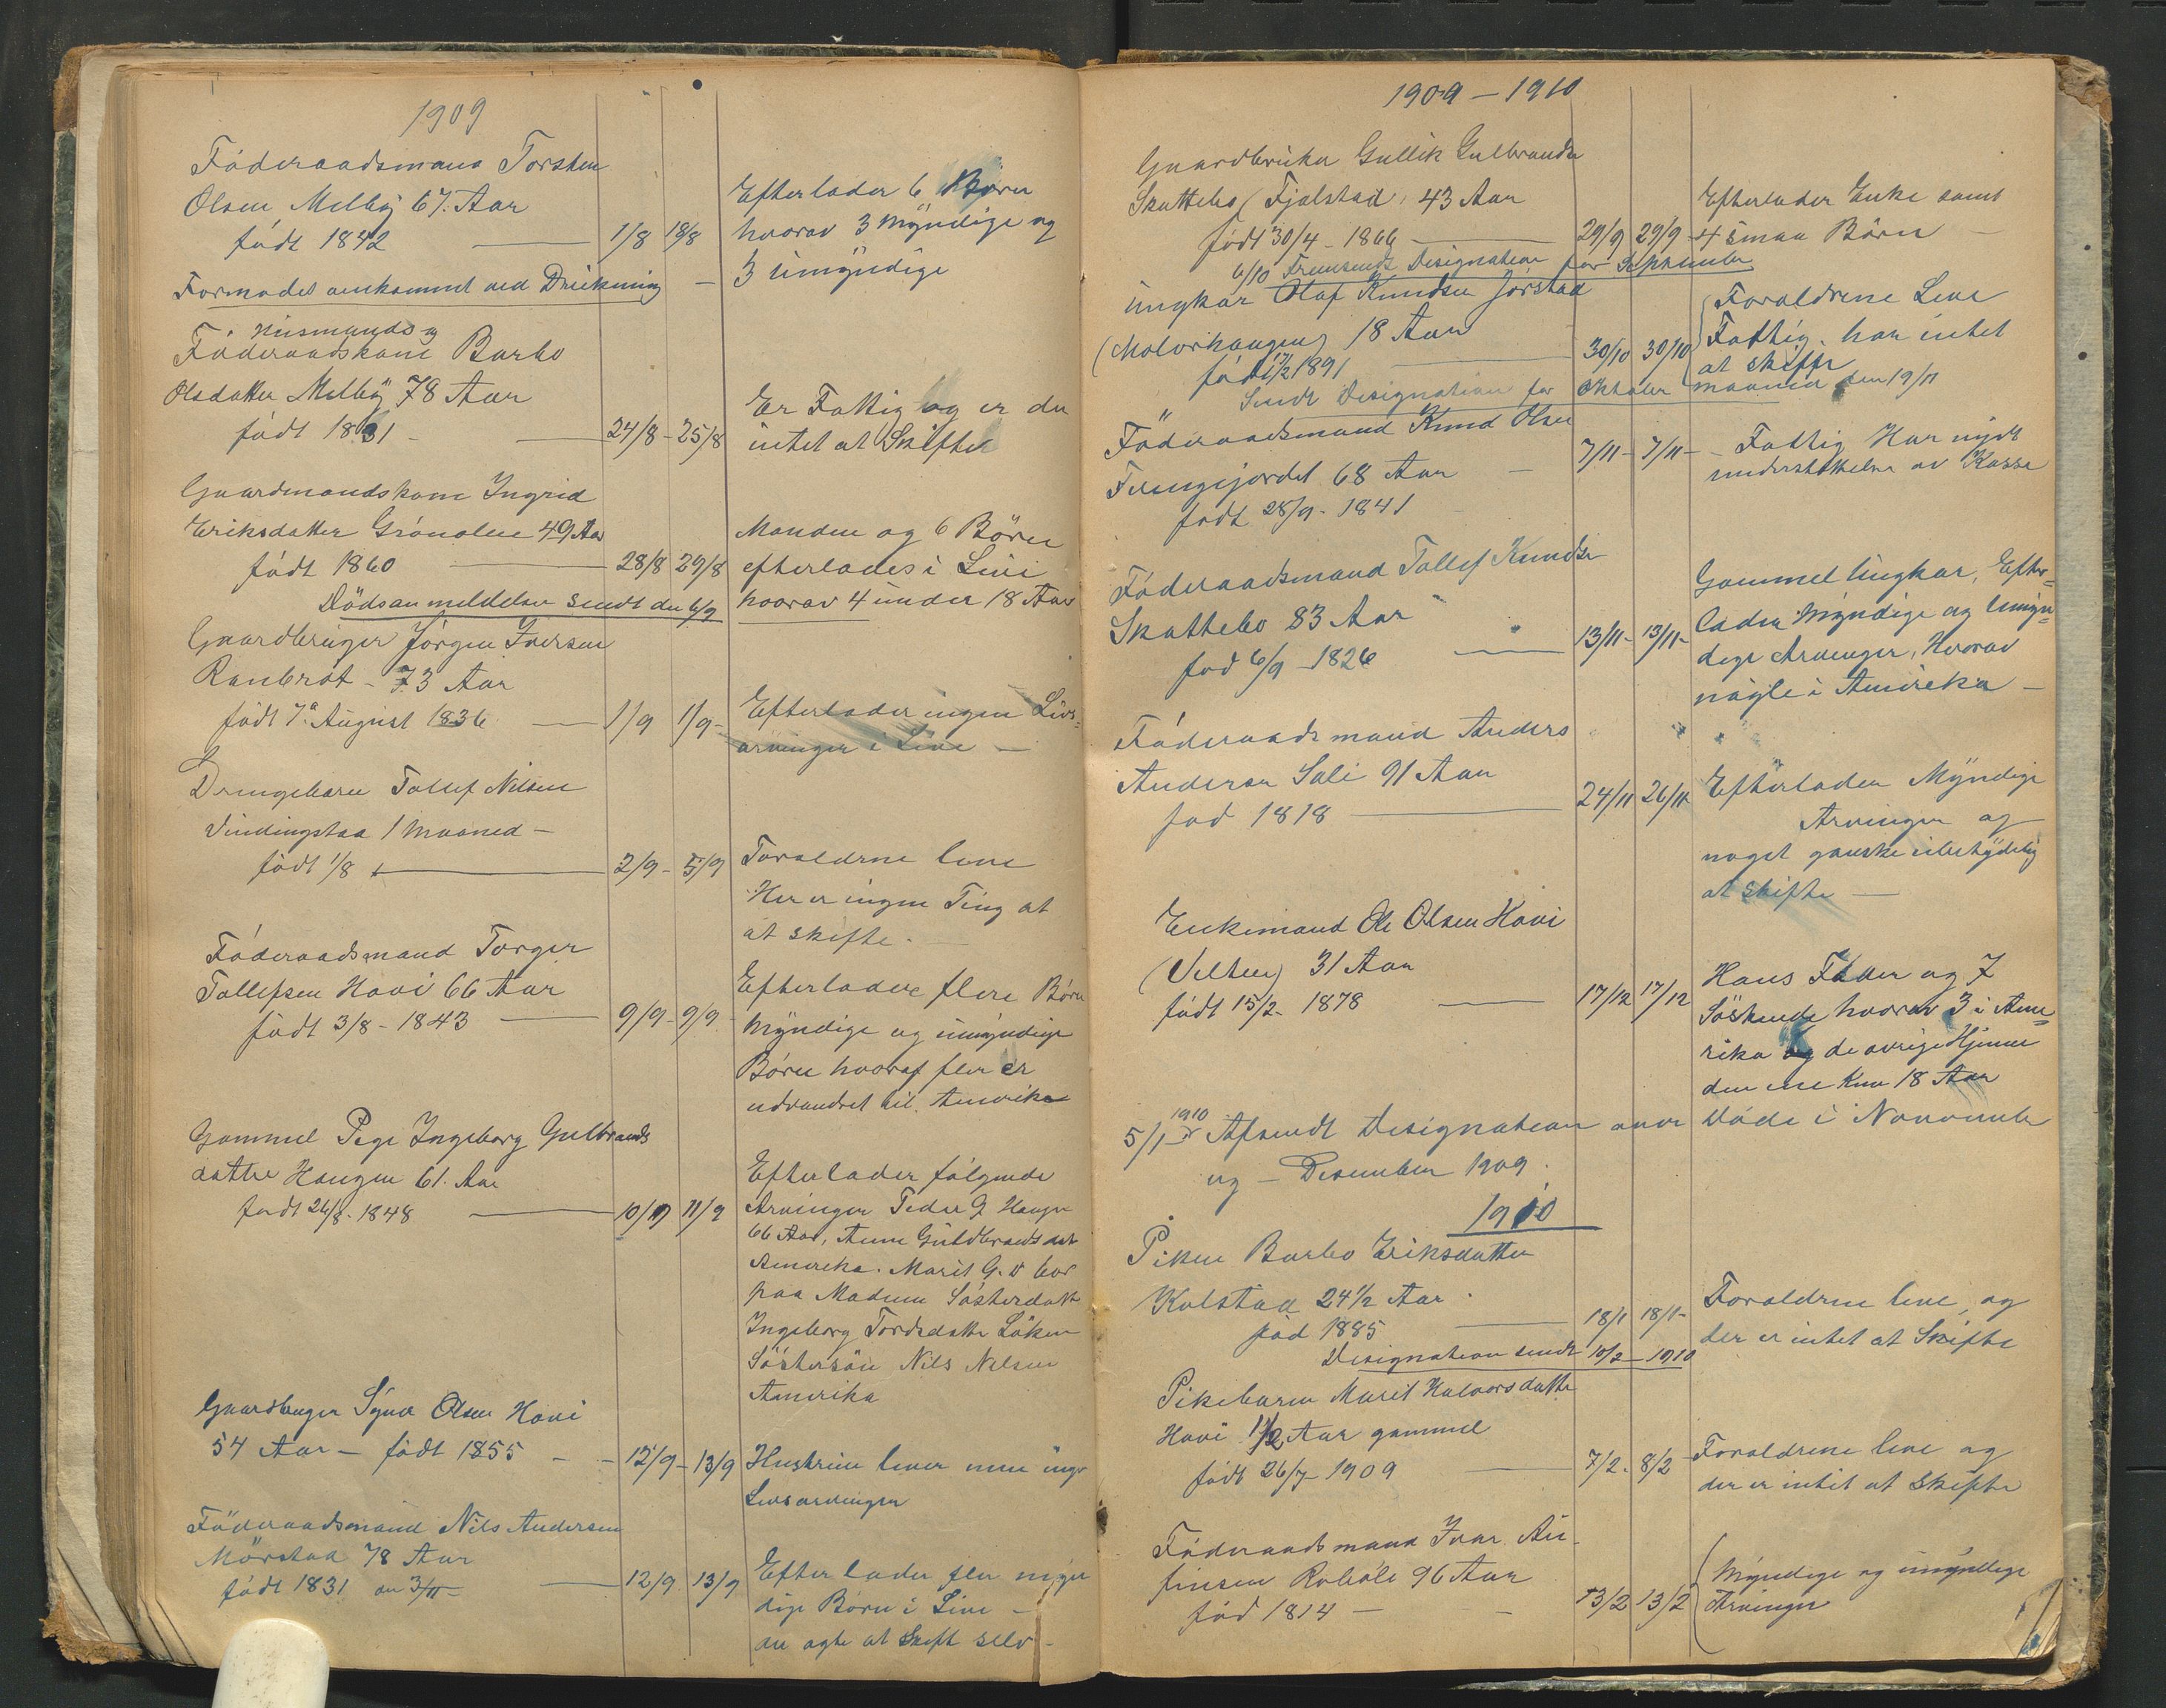 1909
Föderaadsmand Torsten
Olsen Melbÿ 67. Aar
födt 1842 — 1/8 18/8
Efterlader 6 Børn
hvorav 3 mÿndige og
3 umÿndige
Formodet omkommet ved Drukning —
Husmands og
Föderaadskone Barbo
Olsdatter Melbÿ 78 Aar
födt 1831 — 24/8 - 25/8
Er Fattig og er der
intet at Skifte
Gaardmandskone Ingrid
Eriksdatter Grönolen 49 Aar
födt 1860 — 28/8 29/8
Dödsanmeldelser sendt den 6/9
Manden og 6 Börn
efterlades i Live
hvorav 4 under 18 Aar
Gaardbruger Jörgen Iversen
Ranbröt - 73 Aar
födt 7de August 1836 — 1/9 1/9 -
Efterlader ingen Livs=
arvinger i Live —
Drengebarn Tollef Nilsen
Vindingstad 1 Maaned —
födt 1/8 — 2/9 - 5/9
Foraldrene leve
Her er ingen Ting at
at skifte.
Föderaadsmand Torger
Tollefsen Hovi 66 Aar
födt 3/8 - 1843 — 9/9 - 9/9
Efterlader flere Börn
Mÿndige og umÿndige
Börn hvoraf fler er
udvandret til Amerika
Gammel Pige Ingeborg Gulbrands
datter Haugen 61. Aar
födt 24/8 - 1848 — 10/9 11/9
Efterlader fölgende
Arvinger Peder G Haugen
66 Aar, Anne Guldbrandsdat
Amerika. Marit G. D bor
paa Madum Sösterdatter
Ingeborg Tordsdatter Löken
Söstersön Nils Nilsen
Amerika
Gaardbruger Syver Olsen Hovi
54 Aar — födt 1855 - - 12/9 - 13/9
Hustruen lever men ingen
Livsarvinger
Föderaadsmand Nils Andersen
Mörstad 78 Aar
födt 1831 den 3/11 — 12/9 13/9
Efterlader fler myn
dige Børn i Live —
de agte at Skift selv -
1909 — 1910
Gaardbruker Gullik Gulbrandsen
Skattebo (Fjelstad) 43 Aar
födt 30/4 - 1866 — 29/9 29/9 -
Efterlader Enke samt
4 smaa Börn —
6/10 Fremsendt Designation for September
Ungkar Olaf Knudsen Jörstad
(Molorhaugen) 18 Aar
född 17/2 1891 — 30/10 30/10
Foraldrene Leve
Fattig. har intet
at skifte
Sendt Designation for Oktober maaned den 19/11
Föderaadsmand Knud Olsen
68 Aar — 7/11 - 7/11 -
födt 28/9 - 1841
Fattig Har nydt
understöttelse av Kasse
Föderaadsmand Tollef Knudsen
Skattebo 83 Aar
fod 6/9 - 1826 — 13/11 - 13/11 -
Gammel Ungkar, Efter=
lader Mÿndige og Umyn=
dige Arvinger, Hvorav
nogle i Amerika —
Föderaadsmand Anders
Andersen Sali 91 Aar
fød 1818 — 24/11 26/11
Efterlader Mÿndige
Arvinger og
noget ganske ubetÿdelig
at skifte —
Enkemand Ole Olsen Hovi
(Velten) 31 Aar
födt 15/2 - 1878 — 17/12 17/12
Hans Fader og 7
Söskende hvorav 3 i Ame=
rika og de övrige Hjemme
den ene Kun 18 Aar
5/1 1910 Afsendt Designation over Döde i November
og — Desember 1909.
1910
Piken Barbo Eriksdatter
Kolstad 24½ Aar
föd 1885 — 18/1 18/1 -
Foraldrene leve, og
der er intet at Skifte
Designation sendt 10/2 - 1910
Pikebarn Marit Halvorsdatter
Hovi 1/2 Aar gammel
födt 26/7 - 1909 — 7/2. 8/2
Foraldrene leve og
der er intet at Skifte
Föderaadsmand Ivar An-
finsen Roböle 96 Aar
föd 1814 — 13/2 13/2
Mÿndige og umÿndige
Arvinger